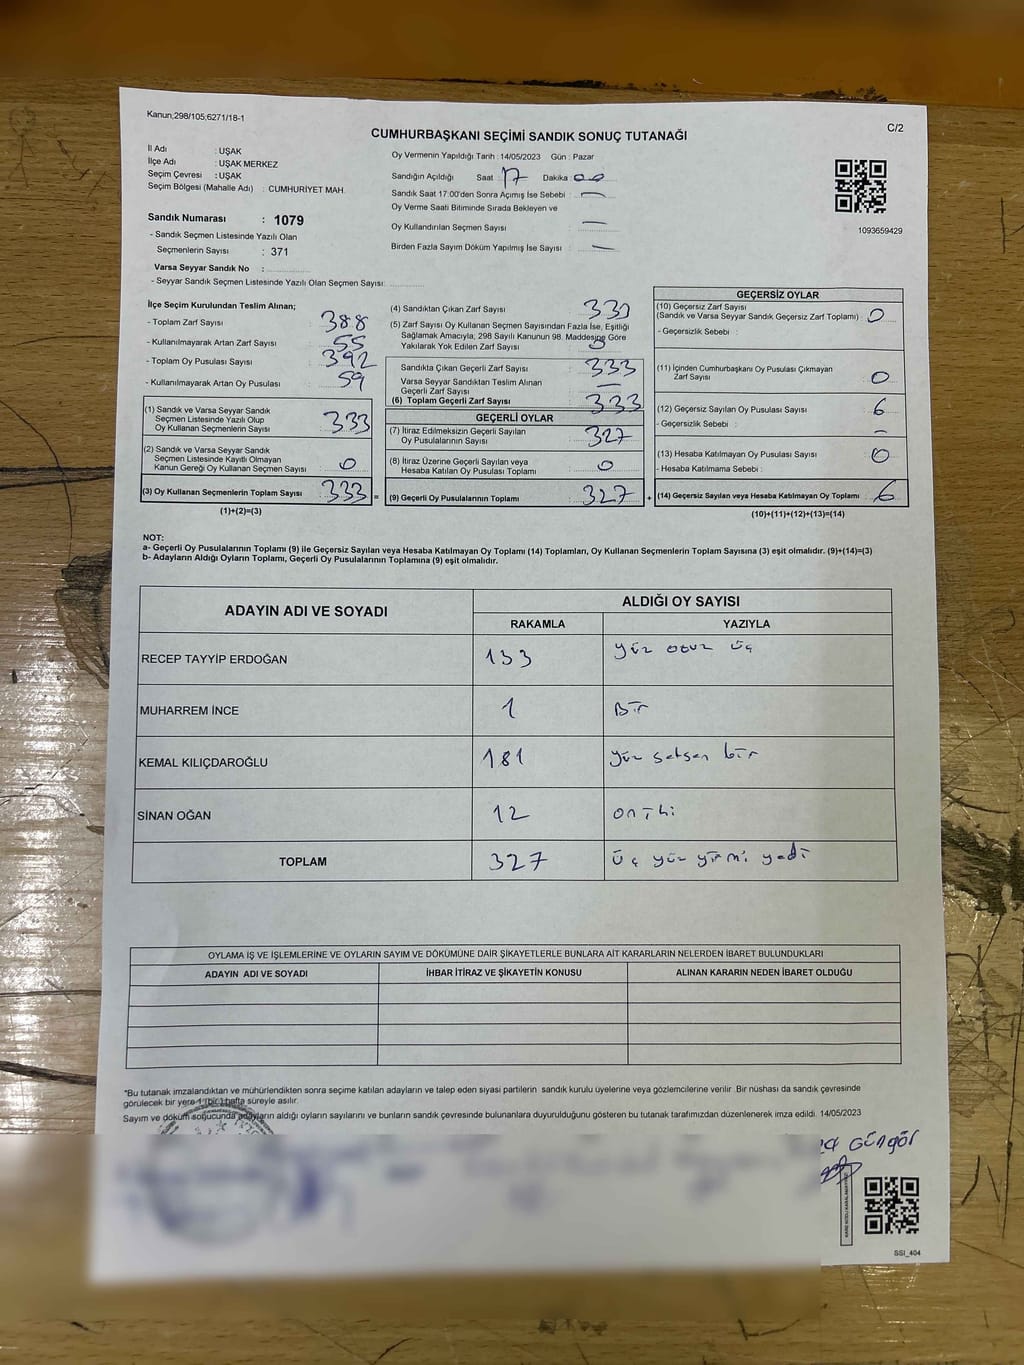 Kanun;298/105;6271/18-1
C/2
CUMHURBAŞKANI SEÇİMİ SANDIK SONUÇ TUTANAĞI
İl Adı : UŞAK
İlçe Adı : UŞAK MERKEZ
Seçim Çevresi : UŞAK
Seçim Bölgesi (Mahalle Adı) : CUMHURİYET MAH.
Sandık Numarası : 1079
- Sandık Seçmen Listesinde Yazılı Olan
Seçmenlerin Sayısı : 371
Varsa Seyyar Sandık No :
- Seyyar Sandık Seçmen Listesinde Yazılı Olan Seçmen Sayısı:
Oy Vermenin Yapıldığı Tarih : 14/05/2023 Gün : Pazar
Sandığın Açıldığı Saat 17 Dakika 00
Sandık Saat 17:00'den Sonra Açımış İse Sebebi : —
Oy Verme Saati Bitiminde Sırada Bekleyen ve
Oy Kullandırılan Seçmen Sayısı : —
Birden Fazla Sayım Döküm Yapılmış İse Sayısı : —
1093659429
İlçe Seçim Kurulundan Teslim Alınan;
- Toplam Zarf Sayısı : 388
- Kullanılmayarak Artan Zarf Sayısı : 55
- Toplam Oy Pusulası Sayısı : 392
- Kullanılmayarak Artan Oy Pusulası : 59
(1) Sandık ve Varsa Seyyar Sandık
Seçmen Listesinde Yazılı Olup
Oy Kullanan Seçmenlerin Sayısı : 333
(2) Sandık ve Varsa Seyyar Sandık
Seçmen Listesinde Kayıtlı Olmayan
Kanun Gereği Oy Kullanan Seçmen Sayısı : 0
(3) Oy Kullanan Seçmenlerin Toplam Sayısı : 333 =
(1)+(2)=(3)
(4) Sandıktan Çıkan Zarf Sayısı : 333
(5) Zarf Sayısı Oy Kullanan Seçmen Sayısından Fazla İse, Eşitliği
Sağlamak Amacıyla; 298 Sayılı Kanunun 98. Maddesine Göre
Yakılarak Yok Edilen Zarf Sayısı : 0
Sandıkta Çıkan Geçerli Zarf Sayısı : 333
Varsa Seyyar Sandıktan Teslim Alınan
Geçerli Zarf Sayısı : —
(6) Toplam Geçerli Zarf Sayısı : 333
GEÇERLİ OYLAR
(7) İtiraz Edilmeksizin Geçerli Sayılan
Oy Pusulalarının Sayısı : 327
(8) İtiraz Üzerine Geçerli Sayılan veya
Hesaba Katılan Oy Pusulası Toplamı : 0
(9) Geçerli Oy Pusulalarının Toplamı : 327 +
GEÇERSİZ OYLAR
(10) Geçersiz Zarf Sayısı
(Sandık ve Varsa Seyyar Sandık Geçersiz Zarf Toplamı) : 0
- Geçersizlik Sebebi :
(11) İçinden Cumhurbaşkanı Oy Pusulası Çıkmayan
Zarf Sayısı : 0
(12) Geçersiz Sayılan Oy Pusulası Sayısı : 6
- Geçersizlik Sebebi : —
(13) Hesaba Katılmayan Oy Pusulası Sayısı : 0
- Hesaba Katılmama Sebebi :
(14) Geçersiz Sayılan veya Hesaba Katılmayan Oy Toplamı : 6
(10)+(11)+(12)+(13)=(14)
NOT:
a- Geçerli Oy Pusulalarının Toplamı (9) ile Geçersiz Sayılan veya Hesaba Katılmayan Oy Toplamı (14) Toplamları, Oy Kullanan Seçmenlerin Toplam Sayısına (3) eşit olmalıdır. (9)+(14)=(3)
b- Adayların Aldığı Oyların Toplamı, Geçerli Oy Pusulalarının Toplamına (9) eşit olmalıdır.
ADAYIN ADI VE SOYADI ALDIĞI OY SAYISI
RAKAMLA YAZIYLA
RECEP TAYYİP ERDOĞAN 133 yüz otuz üç
MUHARREM İNCE 1 Bir
KEMAL KILIÇDAROĞLU 181 yüz seksen bir
SİNAN OĞAN 12 on iki
TOPLAM 327 üç yüz yirmi yedi
OYLAMA İŞ VE İŞLEMLERİNE VE OYLARIN SAYIM VE DÖKÜMÜNE DAİR ŞİKAYETLERLE BUNLARA AİT KARARLARIN NELERDEN İBARET BULUNDUKLARI
ADAYIN ADI VE SOYADI İHBAR İTİRAZ VE ŞİKAYETİN KONUSU ALINAN KARARIN NEDEN İBARET OLDUĞU
*Bu tutanak imzalandıktan ve mühürlendikten sonra seçime katılan adayların ve talep eden siyasi partilerin sandık kurulu üyelerine veya gözlemcilerine verilir .Bir nüshası da sandık çevresinde
görülecek bir yere 1 (bir) hafta süreyle asılır.
Sayım ve döküm soğucunda adayların aldığı oyların sayılarını ve bunların sandık çevresinde bulunanlara duyurulduğunu gösteren bu tutanak tarafımızdan düzenlenerek imza edildi. 14/05/2023
Güngör
SSI_404